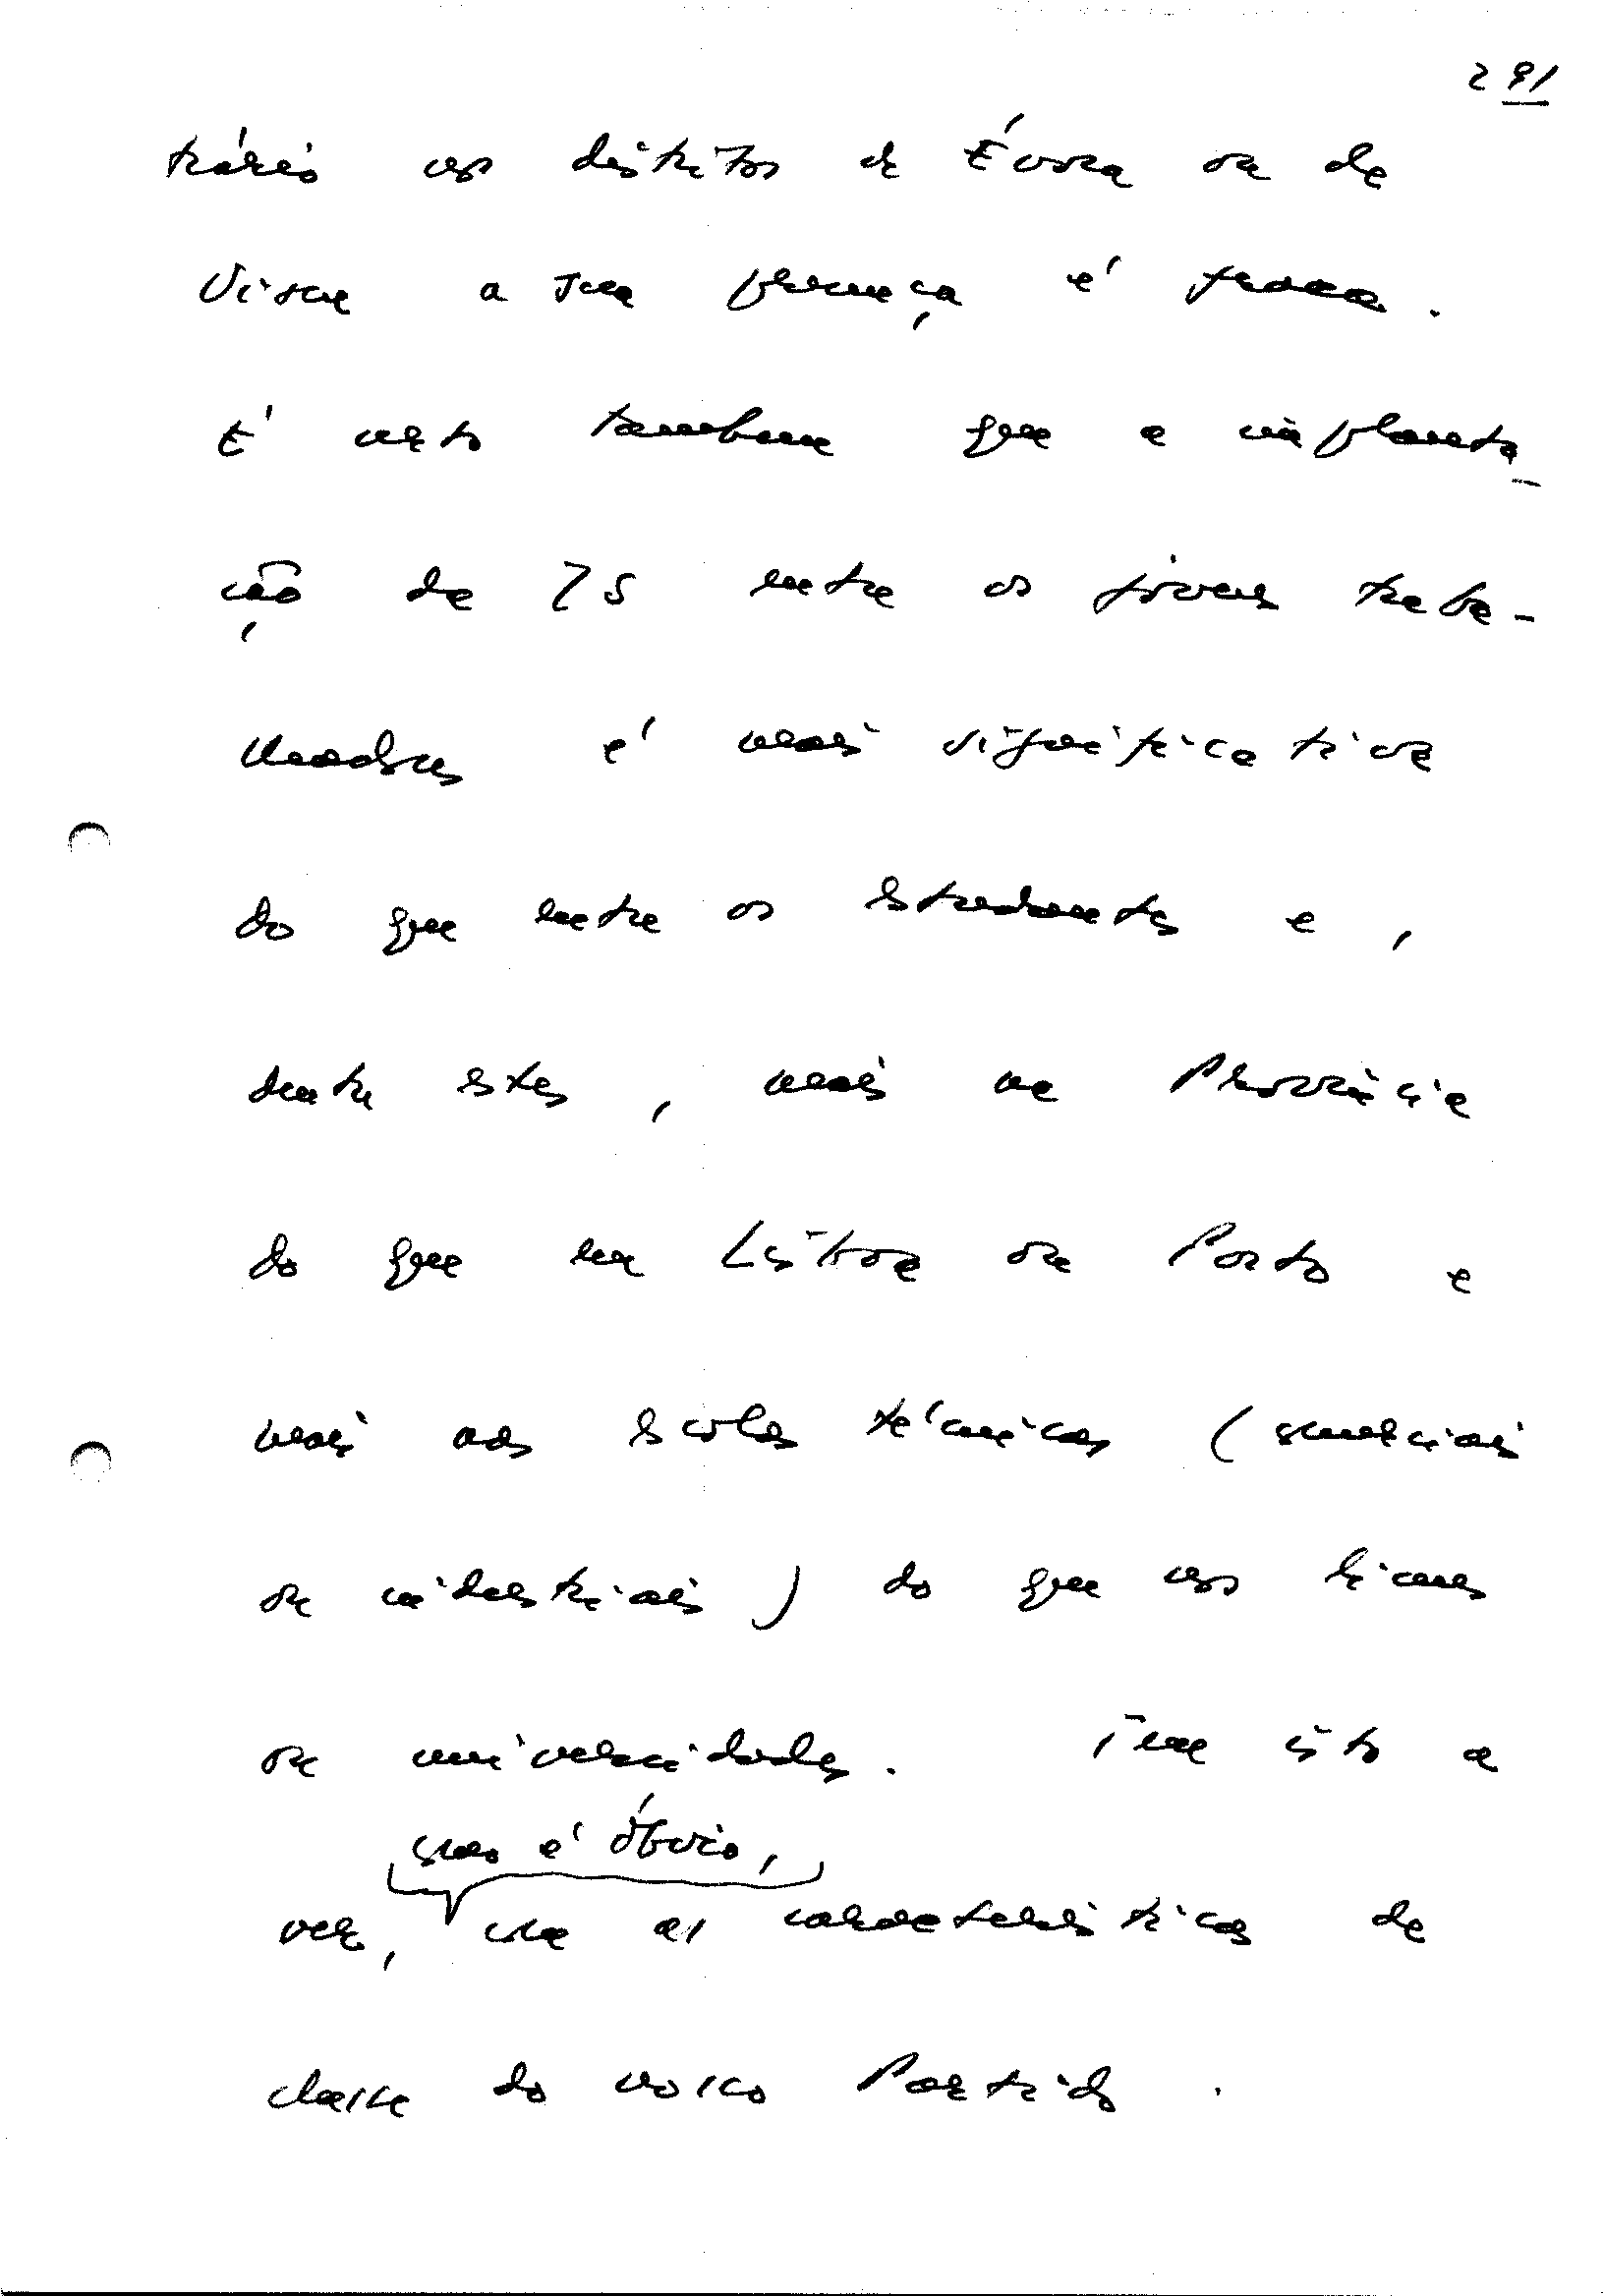 291
trário nos distritos de Évora ou de
Viseu a sua presença é fraca.
É certo também que a implanta-
ção da JS entre os jovens traba-
lhadores é mais significativa
do que entre os estudantes e,
dentre estes, mais na Província
do que em Lisboa ou Porto e
mais nas escolas técnicas (comerciais
ou industriais) do que nos liceus
ou universidades. Tem isto a
como é óbvio,
ver, com as características de
classe do nosso Partido.